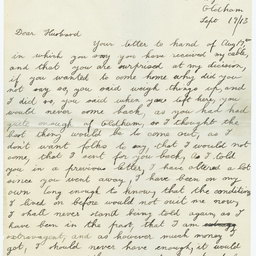 Oldham
Sept 17/13
Dear Husband
Your letter to hand of Aug 1st
in which you say you have received my cable,
and that you are surprised at my decision,
if you wanted to come home why did you
not say so, you said weigh things up, and
I did so, you said when you left here, you
would never come back, as you have had
quite enough of Oldham, so I thought the
last thing would be to come out, as I
don't want folks to say, that I would not
come, that I sent for you back, As I told
you in a previous letter, I have altered a lot
since you went away, I have been on my
own long enough to know, that the conditions
I lived in before would not suit me now,
I shall never stand being told again, as I
have been in the past, that I am
extravagant, and as however much money I
got, I should never have enough, it would